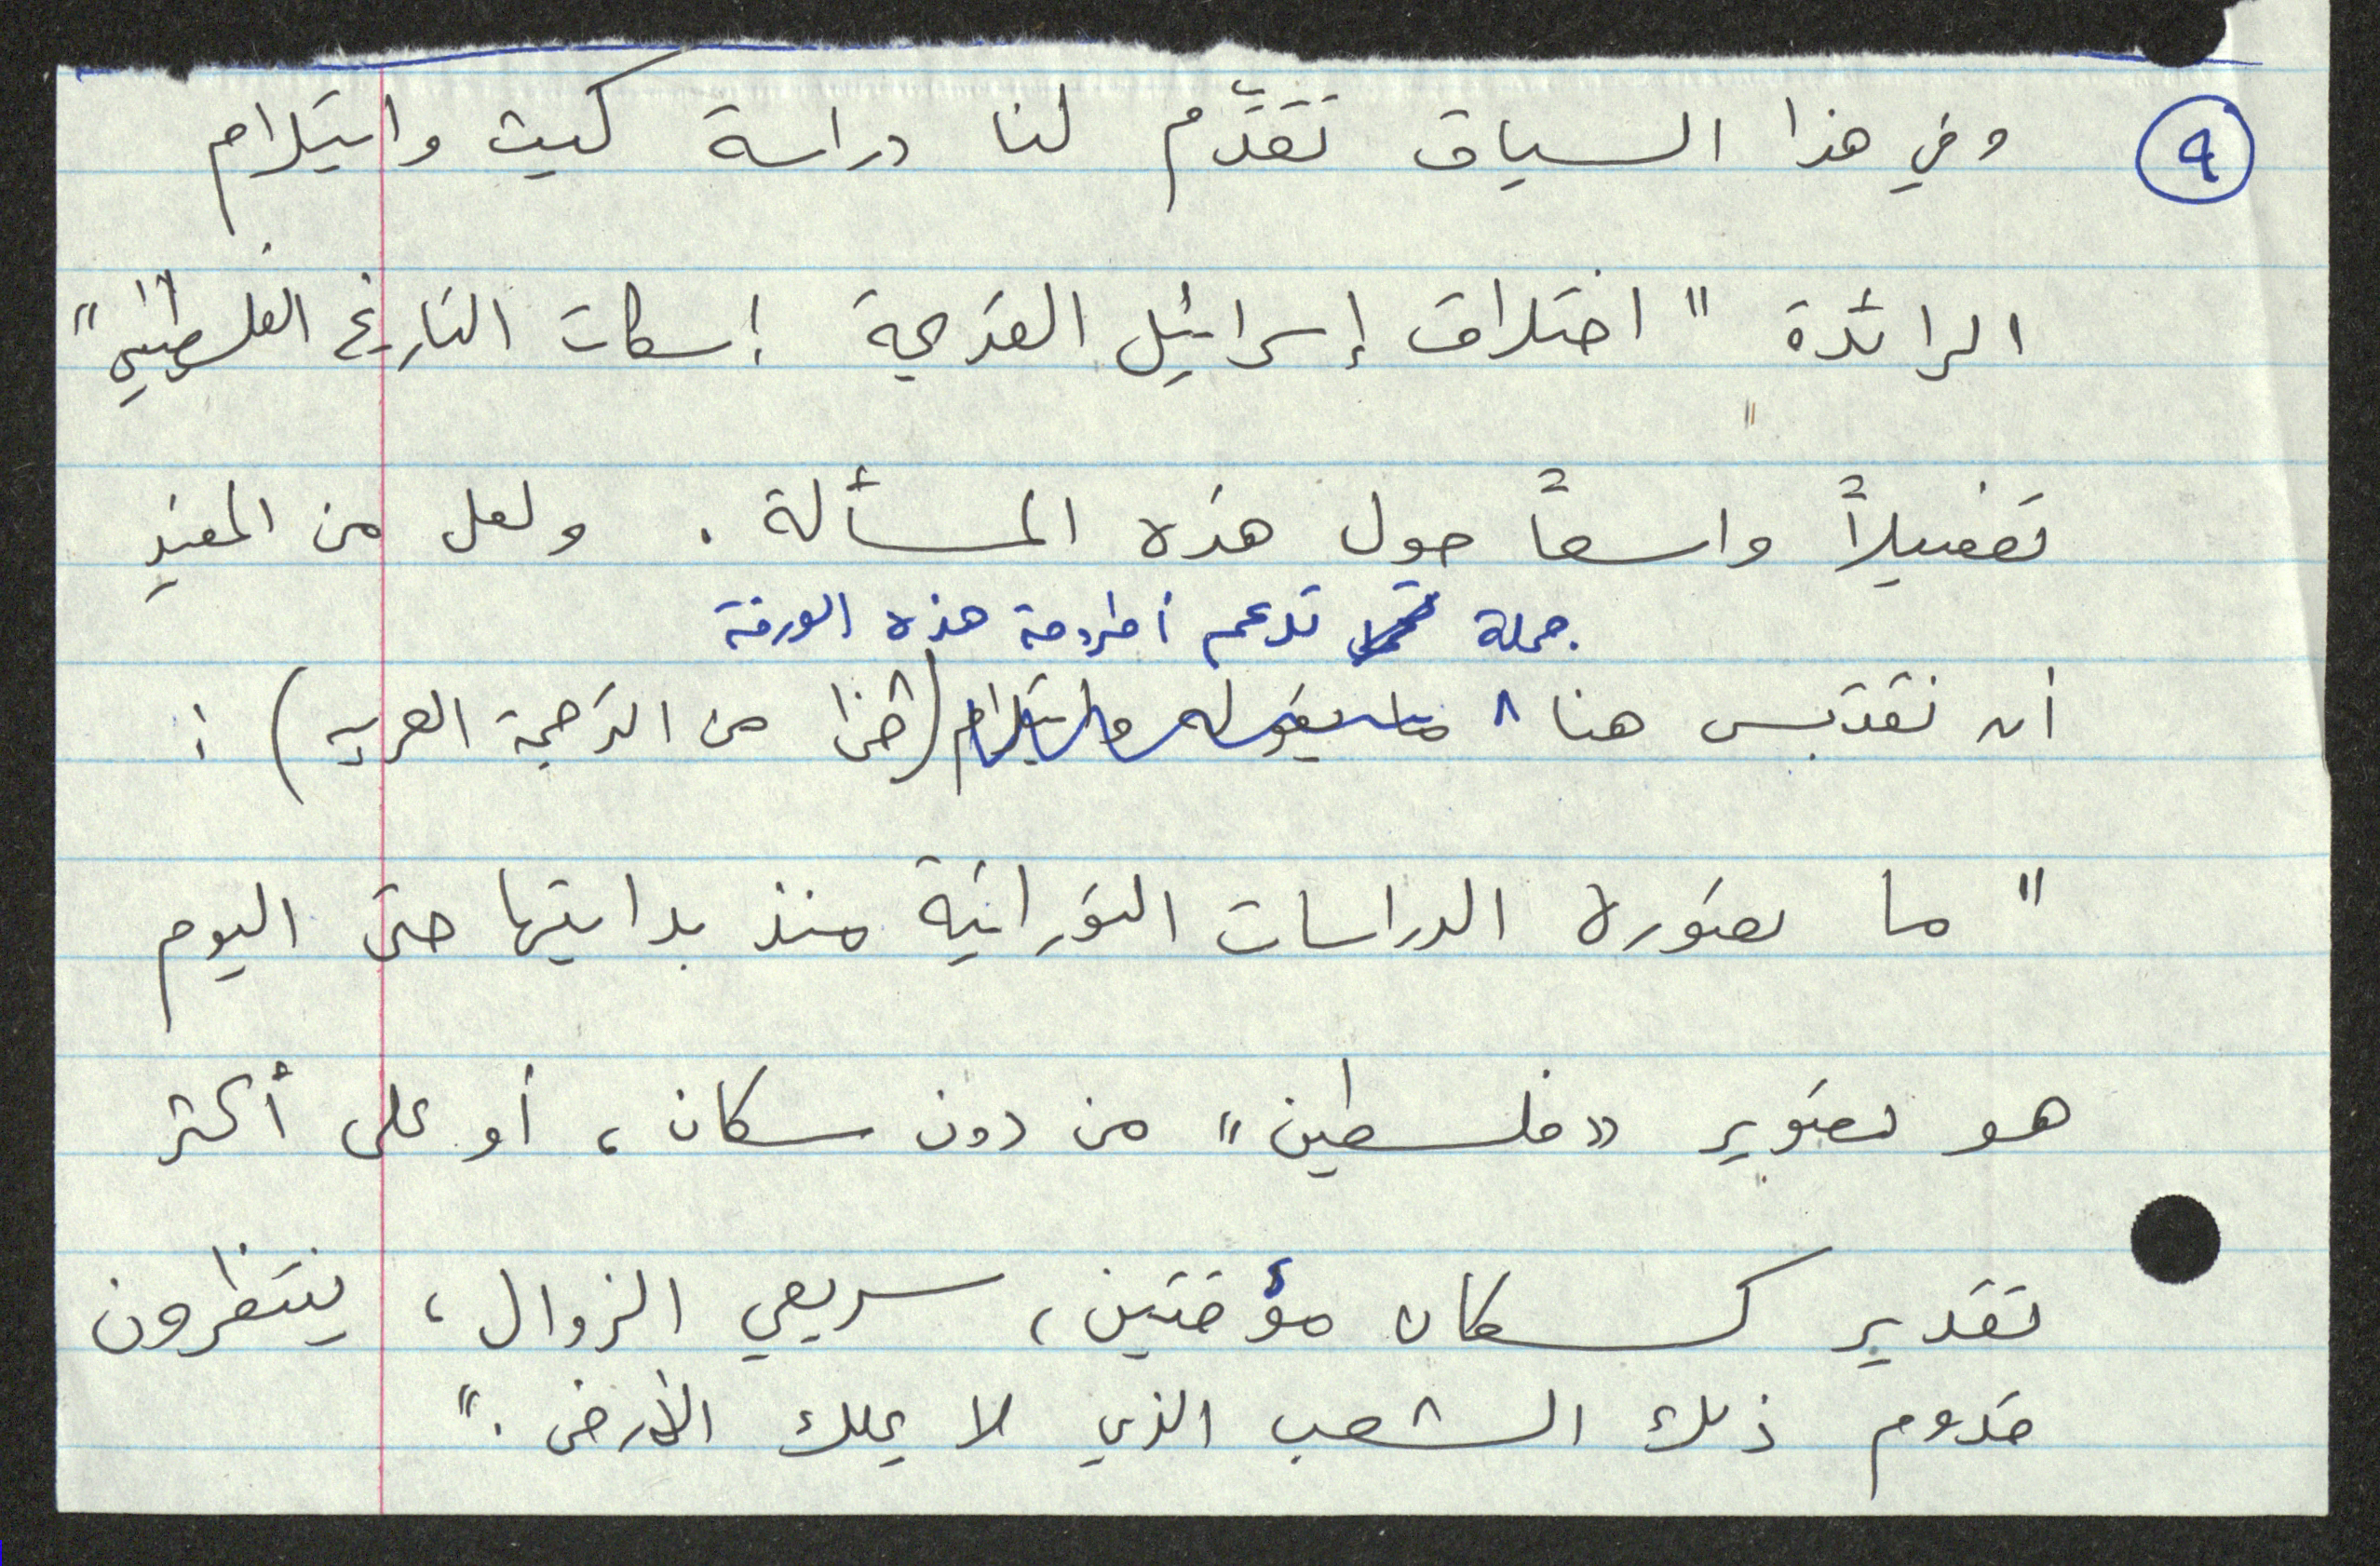 ٩
وفي هذا السياق تقدّم لنا دراسة كيث وايتلام
الرائدة " اختلاق إسرائيل القديمة إسكات التاريخ الفلسطيني "
تفصيلاً واسعاً حول هذه المسألة . ولعل من المفيد
جملة تدعم أطروحة هذه الورقة
أن نقتبس هنا ٨ ما يقوله وايتلام ( من الترجمة العربية ) :
" ما تصوره الدراسات التوراتية منذ بدايتها حتى اليوم
هو تصوير «فلسطين» من دون سكان ، أو على أكثر
تقدير كسكان مؤقتين ، سريعي الزوال ، ينتظرون
قدوم ذلك الشعب الذي لا يملك الأرض . "